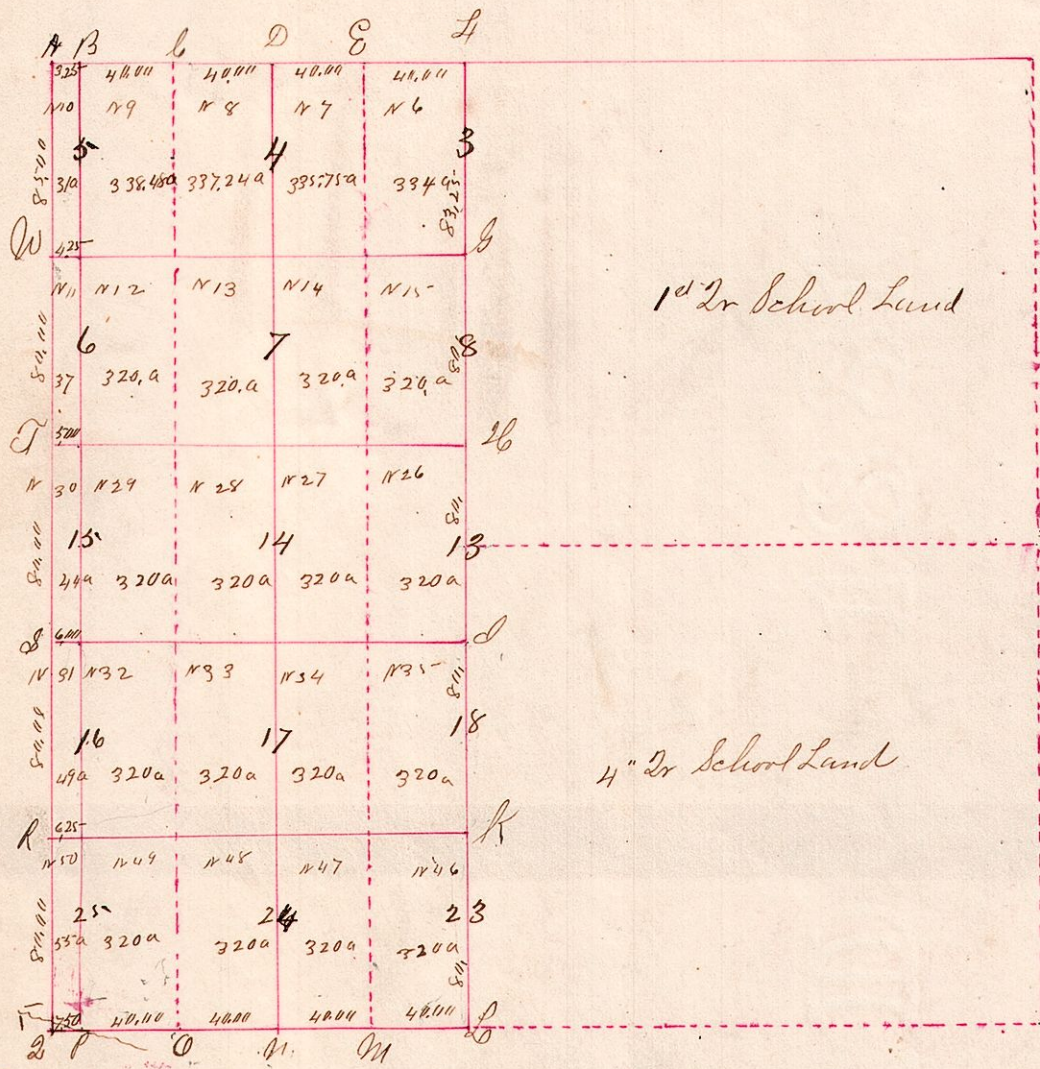 A B C D E F
3.25 40.00 40.00 40.00 40.00
N10 N9 N8 N7 N6
5 4 3
85.00 31a 338.48a 337.24a 335.75a 334a 83.25
W 4.25 G
N11 N12 N13 N14 N15
6 7 8
80.00 37 320.a 320.a 320.a 320.a 80
T 5.00 H
N 30 N29 N28 N27 N26
80
15 14 13
80.00 44a 320a 320a 320a 320a
S 6.00 I
N 31 N32 N33 N34 N35
80
16 17 18
80.00 49a 320a 320a 320a 320a
R 6.25 K
N50 N49 N48 N47 N46
25 24 23
80.00 55a 320a 320a 320a 320a 80
7.50 40.00 40.00 40.00 40.00 L
Q P O N. M
1st Qr School Land
4" Qr School Land